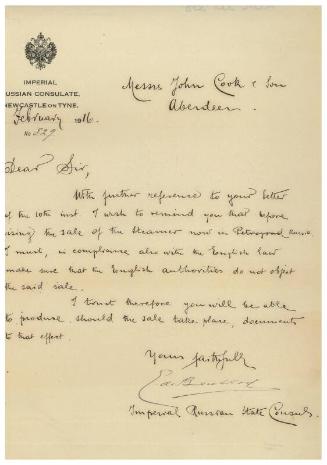 IMPERIAL
RUSSIAN CONSULATE,
NEWCASTLE ON TYNE.
Messrs John Cook & Son
Aberdeen.
February 1916.
No 529
Dear Sir,
With further reference to your letter
of the 10th inst. I wish to remind you that before
the sale of the Steamer now in Petrograd, Russia
I must, in compliance also with the English Law
make sure that the English authorities do not object
the said sale.
I trust therefore you will be able
to produce, should the sale take place, documents
to that effect.
Yours faithfully
Imperial Russian State Consul.